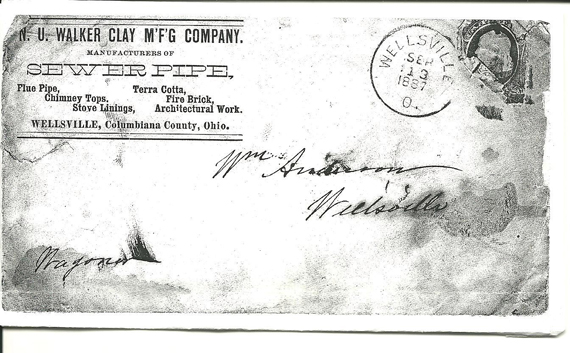 N. U. WALKER CLAY M'F'G COMPANY.
MANUFACTURERS OF
SEWER PIPE,
Flue Pipe, Terra Cotta,
Chimney Tops. Fire Brick,
Stove Linings, Architectural Work.
WELLSVILLE, Columbiana County, Ohio.
WELLSVILLE
SEP
13
1887
O.
Wm Anderson
Wellsville